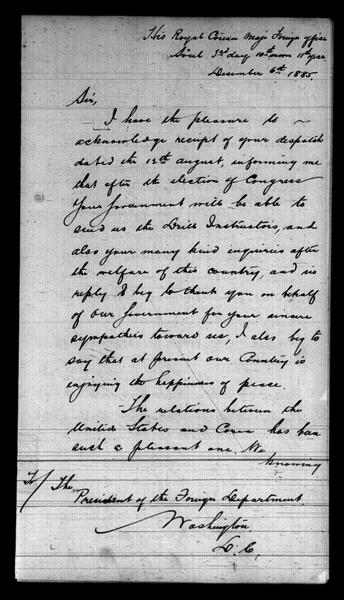 His Royal Corean Maj's Foreign office
Söul 3rd day 10th moon 11th year
December 6th 1885.
Sir,
I have the pleasure to
acknowledge receipt of your despatch
dated the 12th august, informing me
that after the election of Congress
Your Government will be able to
send us the Drill Instructors, and
also your many kind inquiries after
the welfare of this country, and in
reply I beg to thank you on behalf
of our Government for your sincere
sympathies toward us, I also beg to
say that at present our Country is
enjoying the happiness of peace.
The relations between the
United States and Corea has been
such a pleasant one. We
knowing
To/ The
President of the Foreign Department
Washington.
D. C.